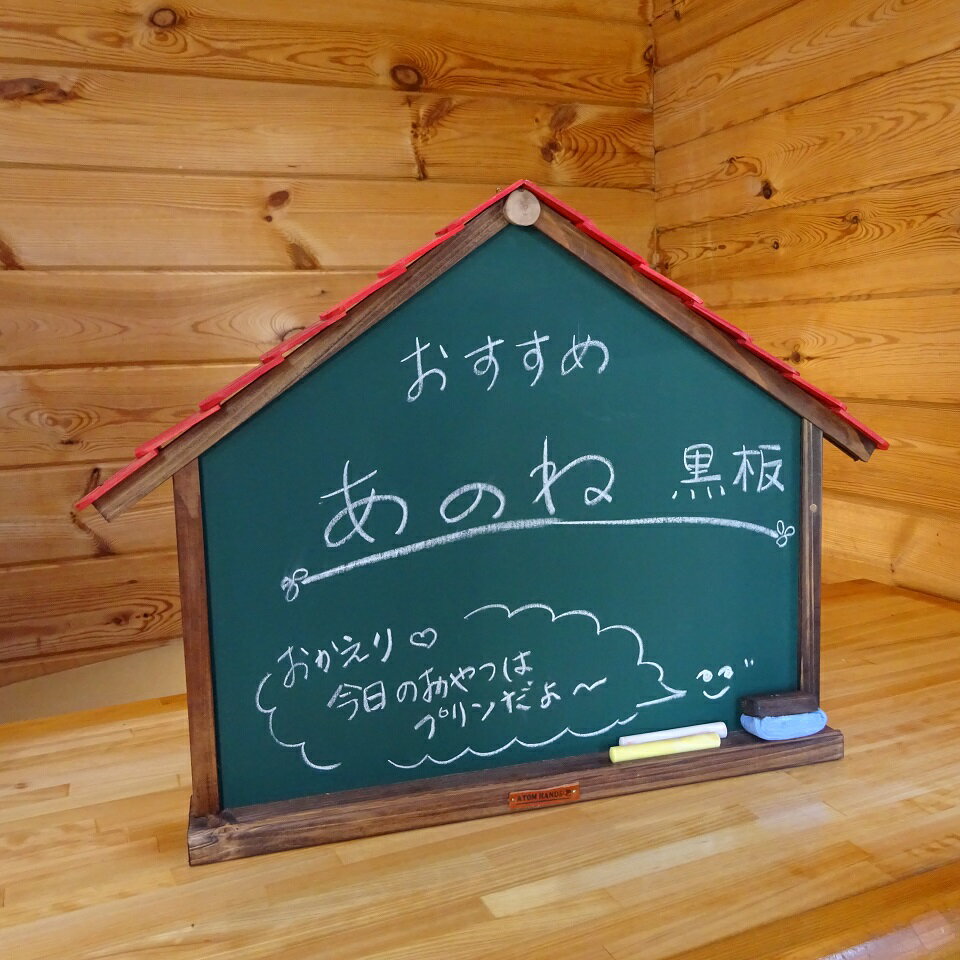 おすすめ
あのね 黒板
おかえり♡
今日のおやつは
プリンだよ～